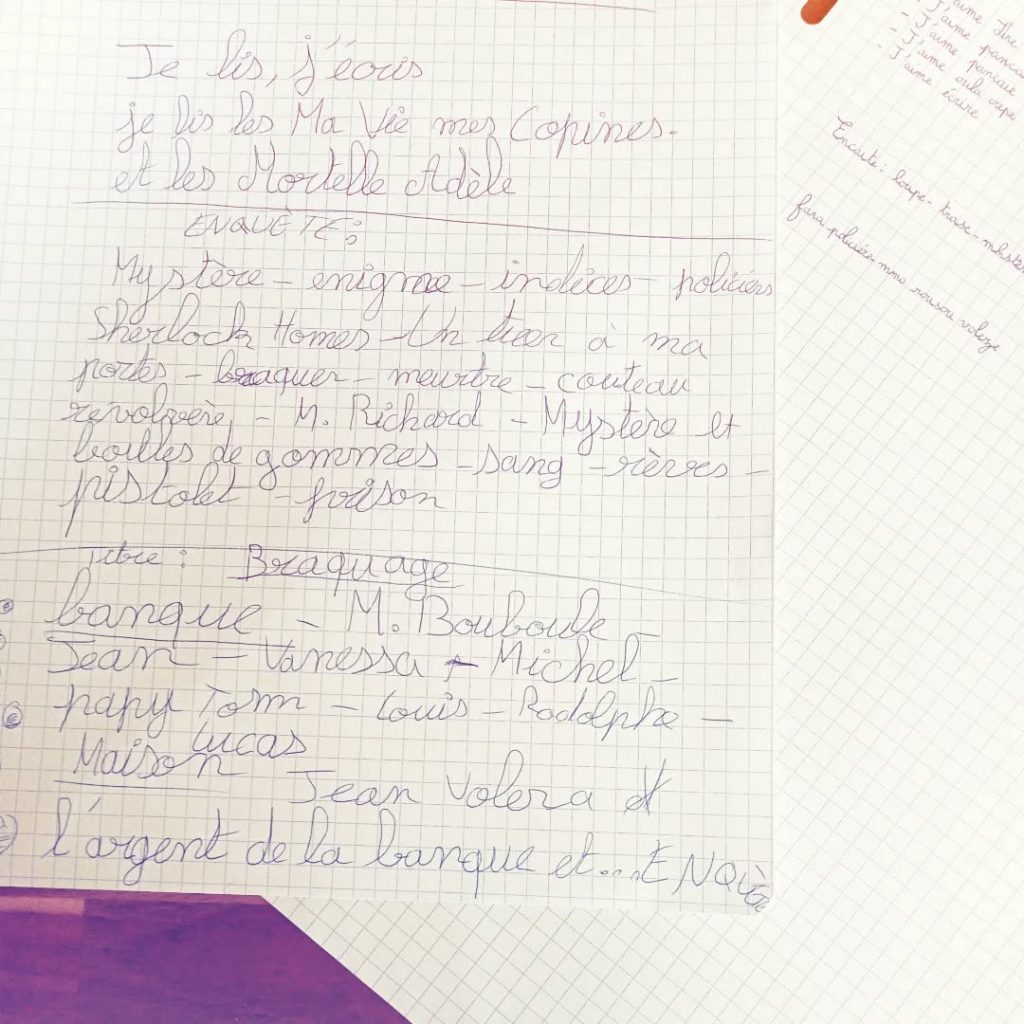 Je lis, j'écris
je lis les Ma Vie mes Copines.
et les Mortelle Adèle
ENQUÊTE:
Mystère - énigme - indices - policiers
Sherlock Homes - Un tueur à ma
portes - braquer - meurtre - couteau
révolvère - M. Richard - Mystère et
boulles de gommes - sang - rêves -
pistolet - poison
Titre : Braquage
banque - M. Bouboule -
Jean - Vanessa - Michel -
papy Tom - Louis - Rodolphe -
Lucas
Maison Jean Volera
l'argent de la banque et...ENQUÊTE
J'aime lire
- J'aime
- J'aime
- J'aime oula oupe
- J'aime écrire
Encaite : loupe - trase -